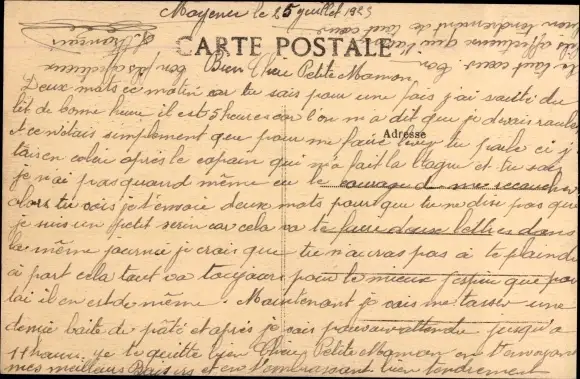 Mayenne le 25 juillet 1923
CARTE POSTALE
Bien Chère Petite Maman
Deux mots ce matin car tu sais pour une fois j'ai sauté du
lit de bonne heure il est 5 heures car l'on m'a dit que je devais
Adresse
et ce n'etais simplement que pour me faire lever tu parle si j'
tais en colère après le copain qui m'a fait la blague et tu sais
je n'ai pas quand même eu le courage de me recoucher
alors tu vois je t'envoie deux mots pour que tu ne dise pas que
je suis un petit serin car cela va te faire deux lettres dans
la même journée je crais que tu n'auras pas à te plaindre
à part cela tout va toujours pour le mieux j'espère que pour
toi il en est de même. Maintenant je vais me tasser une
demie boite de pâté et après je vais pouvoir attendre jusqu'a
11 heures. je te quitte bien Chère Petite Maman en t'envoyant
mes meilleurs Baisers et en t'embrassant bien tendrement